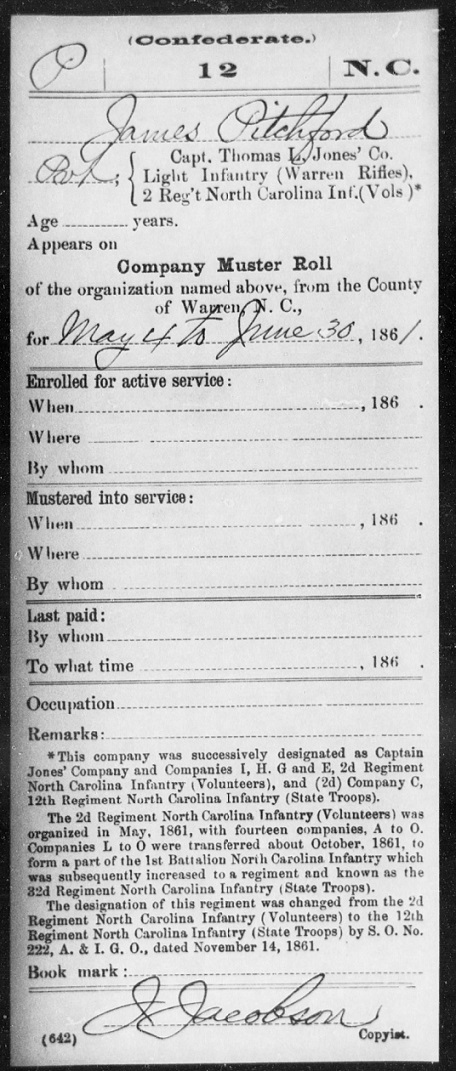 (Confederate.)
P 12 N.C.
James Pitchford
Pvt, { Capt. Thomas L. Jones' Co.
Light Infantry (Warren Rifles),
2 Reg't North Carolina Inf. (Vols.)*
Age years.
Appears on
Company Muster Roll
of the organization named above, from the County
of Warren, N. C.,
for May 4 to June 30, 1861.
Enrolled for active service:
When , 186 .
Where
By whom
Mustered into service:
When , 186 .
Where
By whom
Last paid:
By whom
To what time , 186 .
Occupation
Remarks:
*This company was successively designated as Captain
Jones' Company and Companies I, H. G and E, 2d Regiment
North Carolina Infantry (Volunteers), and (2d) Company C,
12th Regiment North Carolina Infantry (State Troops).
The 2d Regiment North Carolina Infantry (Volunteers) was
organized in May, 1861, with fourteen companies, A to O.
Companies L to O were transferred about October, 1861, to
form a part of the 1st Battalion North Carolina Infantry which
was subsequently increased to a regiment and known as the
32d Regiment North Carolina Infantry (State Troops).
The designation of this regiment was changed from the 2d
Regiment North Carolina Infantry (Volunteers) to the 12th
Regiment North Carolina Infantry (State Troops) by S. O. No.
222, A. & I. G. O., dated November 14, 1861.
Book mark:
J Jacobson
(642) Copyist.